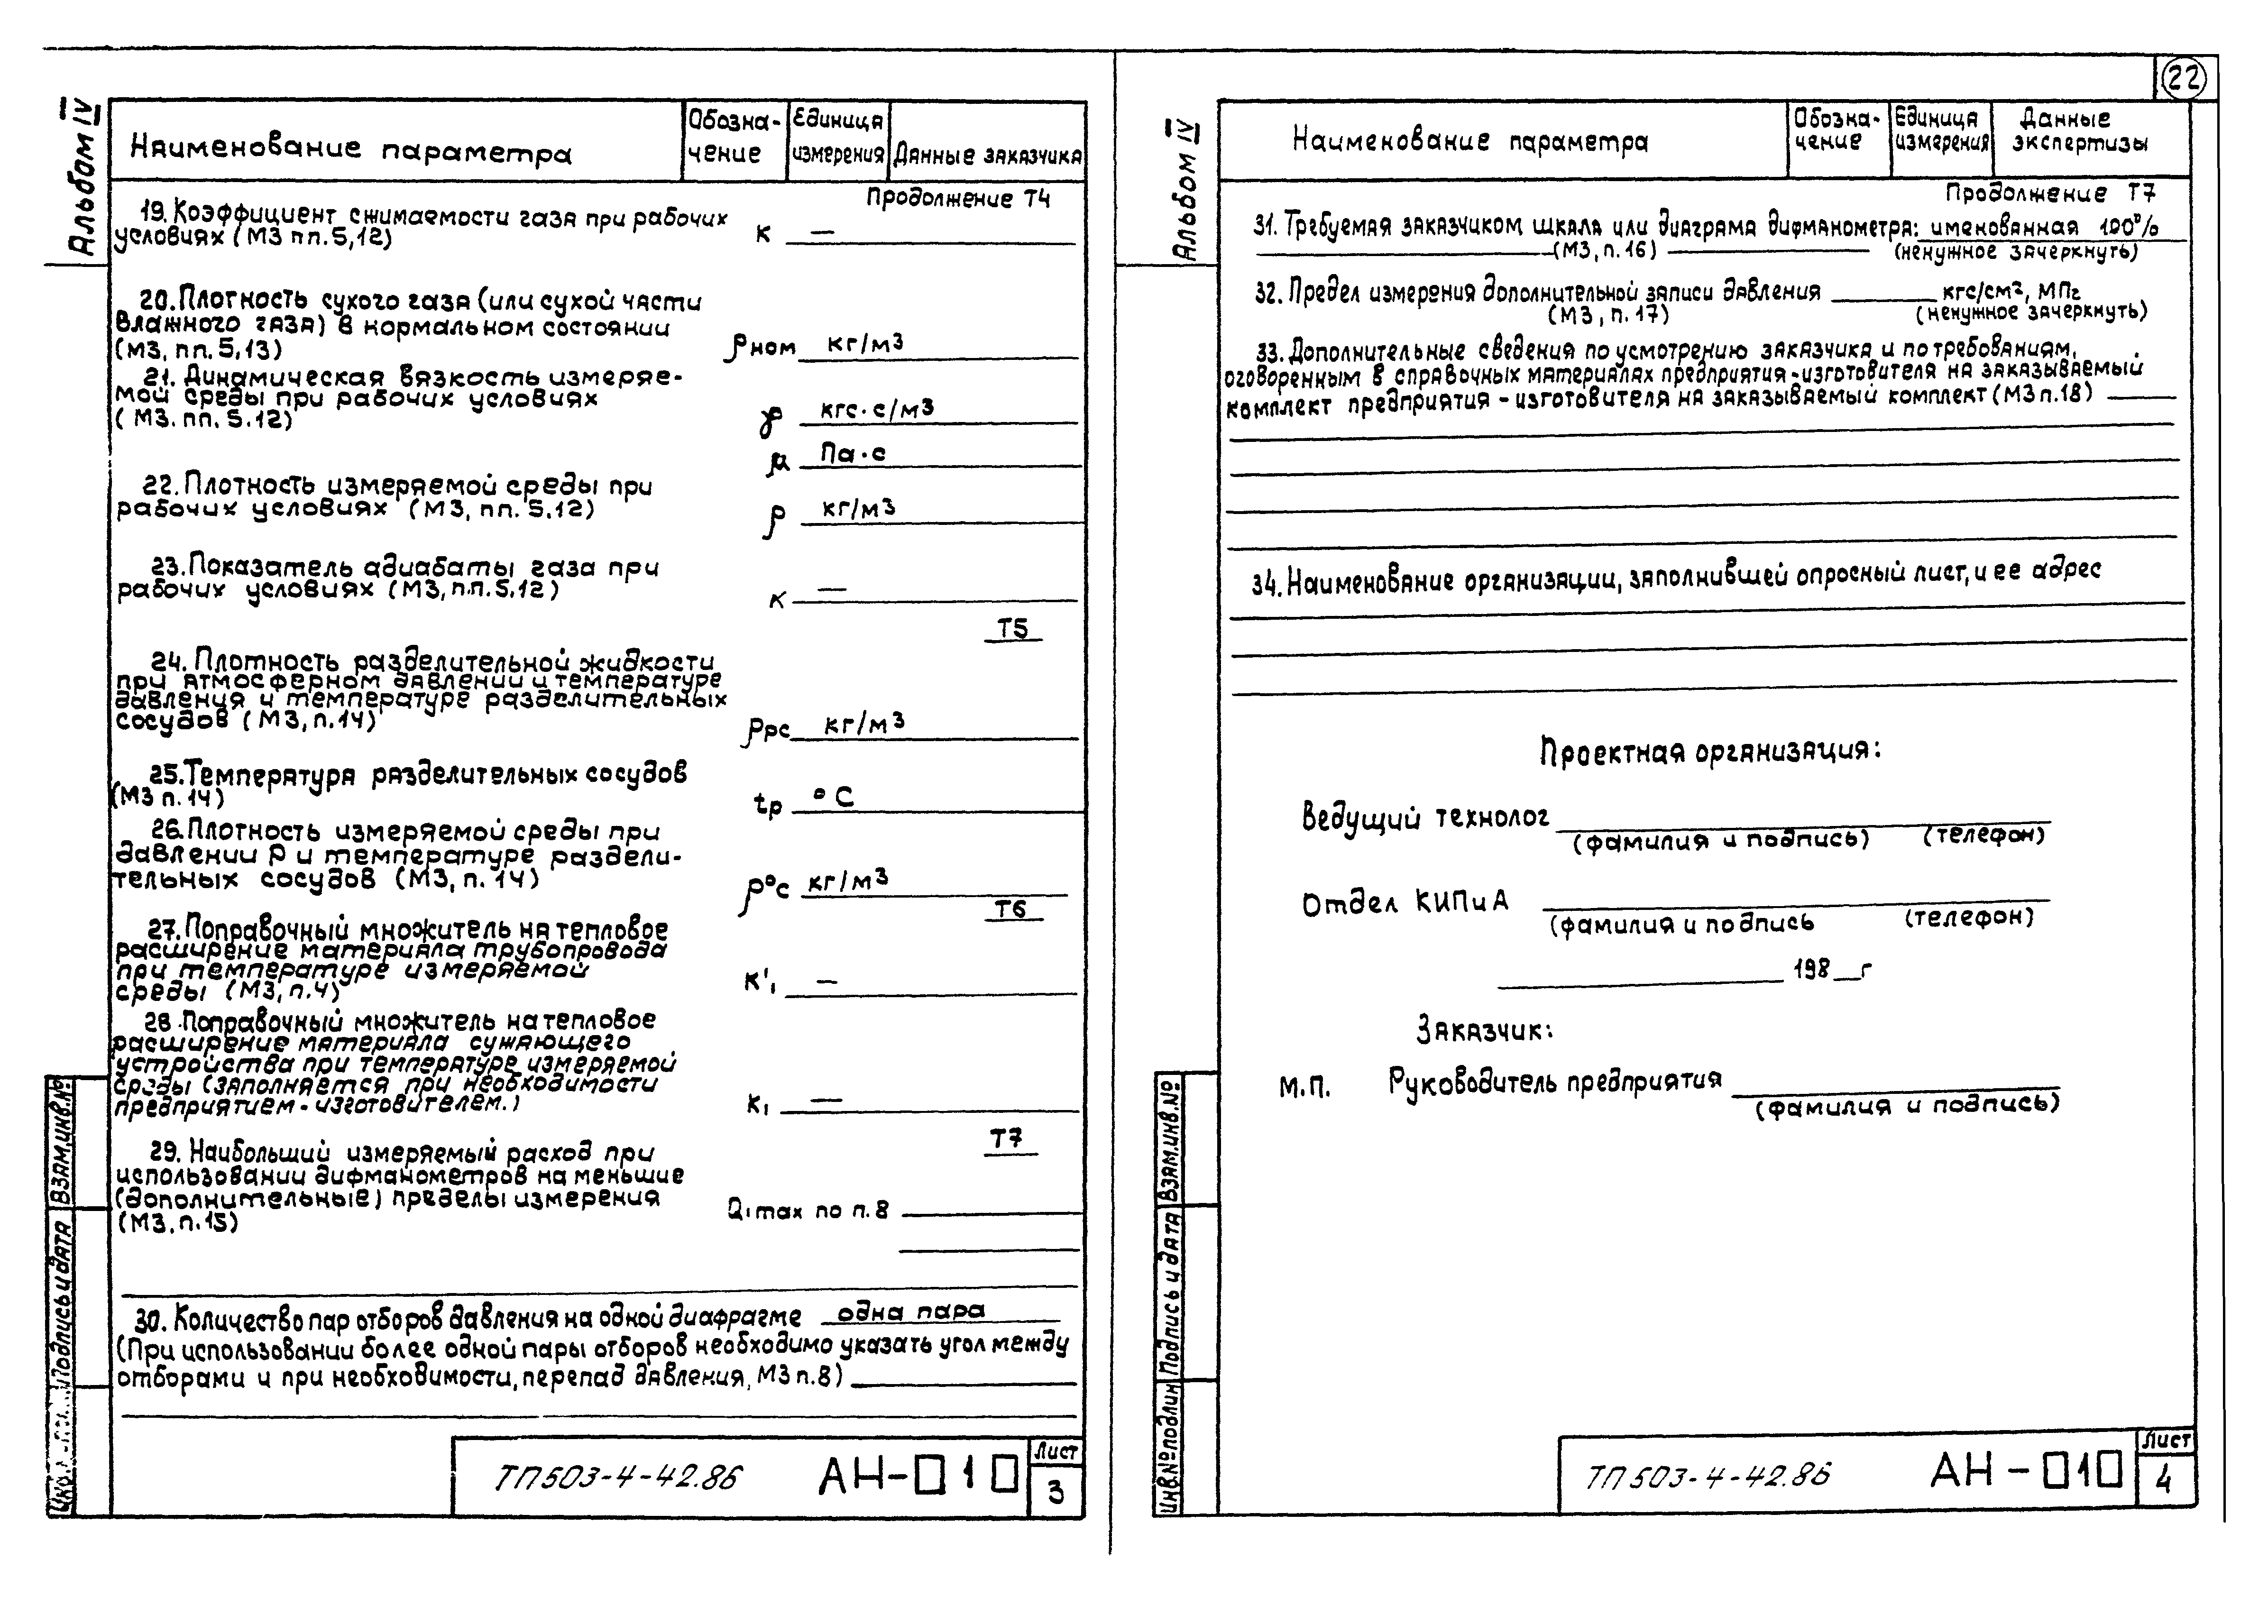 Альбом IV
Наименование параметра
Обозна-
чение
Единица
измерения
Данные заказчика
Продолжение Т4
19. Коэффициент сжимаемости газа при рабочих
условиях (М3 пп. 5,12)
К —
20. Плотность сухого газа (или сухой части
влажного газа) в нормальном состоянии
(М3, пп. 5,13)
ρном кг/м3
21. Динамическая вязкость измеряе-
мой среды при рабочих условиях
(М3. пп. 5.12)
кгс·с/м3
μ Па·с
22. Плотность измеряемой среды при
рабочих условиях (М3, пп. 5.12)
ρ кг/м3
23. Показатель адиабаты газа при
рабочих условиях (М3, п.п. 5.12)
К —
Т5
24. Плотность разделительной жидкости
при атмосферном давлении и температуре
давления и температуре разделительных
сосудов (М3, п.14)
ρрс кг/м3
25. Температура разделительных сосудов
(М3 п. 14)
tр °С
26. Плотность измеряемой среды при
давлении Р и температуре раздели-
тельных сосудов (М3, п. 14)
ρ°с кг/м3
Т6
27. Поправочный множитель на тепловое
расширение материала трубопровода
при температуре измеряемой
среды (М3, п.4)
К'1 —
28. Поправочный множитель на тепловое
расширение материала сужающего
устройства при температуре измеряемой
среды (заполняется при необходимости
предприятием-изготовителем.)
К1 —
Т7
29. Наибольший измеряемый расход при
использовании дифманометров на меньшие
(дополнительные) пределы измерения
(М3. п. 15)
Q1max по п. 8
30. Количество пар отборов давления на одной диафрагме одна пара
(При использовании более одной пары отборов необходимо указать угол между
отборами и при необходимости, перепад давления, М3 п. 8)
Взам.инв.№
Подпись и дата
ТП 503-4-42.86 АН-□1□
Лист
3
22
Альбом IV
Наименование параметра
Обозна-
чение
Единица
измерения
Данные
экспертизы
Продолжение Т7
31. Требуемая заказчиком шкала или диаграма дифманометра: именованная 100%
(М3, п. 16) (ненужное зачеркнуть)
32. Предел измерения дополнительной записи давления кгс/см², МПг
(М3, п. 17) (ненужное зачеркнуть)
33. Дополнительные сведения по усмотрению заказчика и по требованиям,
оговоренным в справочных материалах предприятия-изготовителя на заказываемый
комплект предприятия-изготовителя на заказываемый комплект (М3 п. 18)
34. Наименование организации, заполнившей опросный лист, и ее адрес
Проектная организация:
Ведущий технолог
(фамилия и подпись) (телефон)
Отдел КИПиА
(фамилия и подпись (телефон)
198 г
Заказчик:
М.П. Руководитель предприятия
(фамилия и подпись)
Взам.инв.№
Подпись и дата
Инв.№подлин
ТП 503-4-42.86 АН-□1□
Лист
4